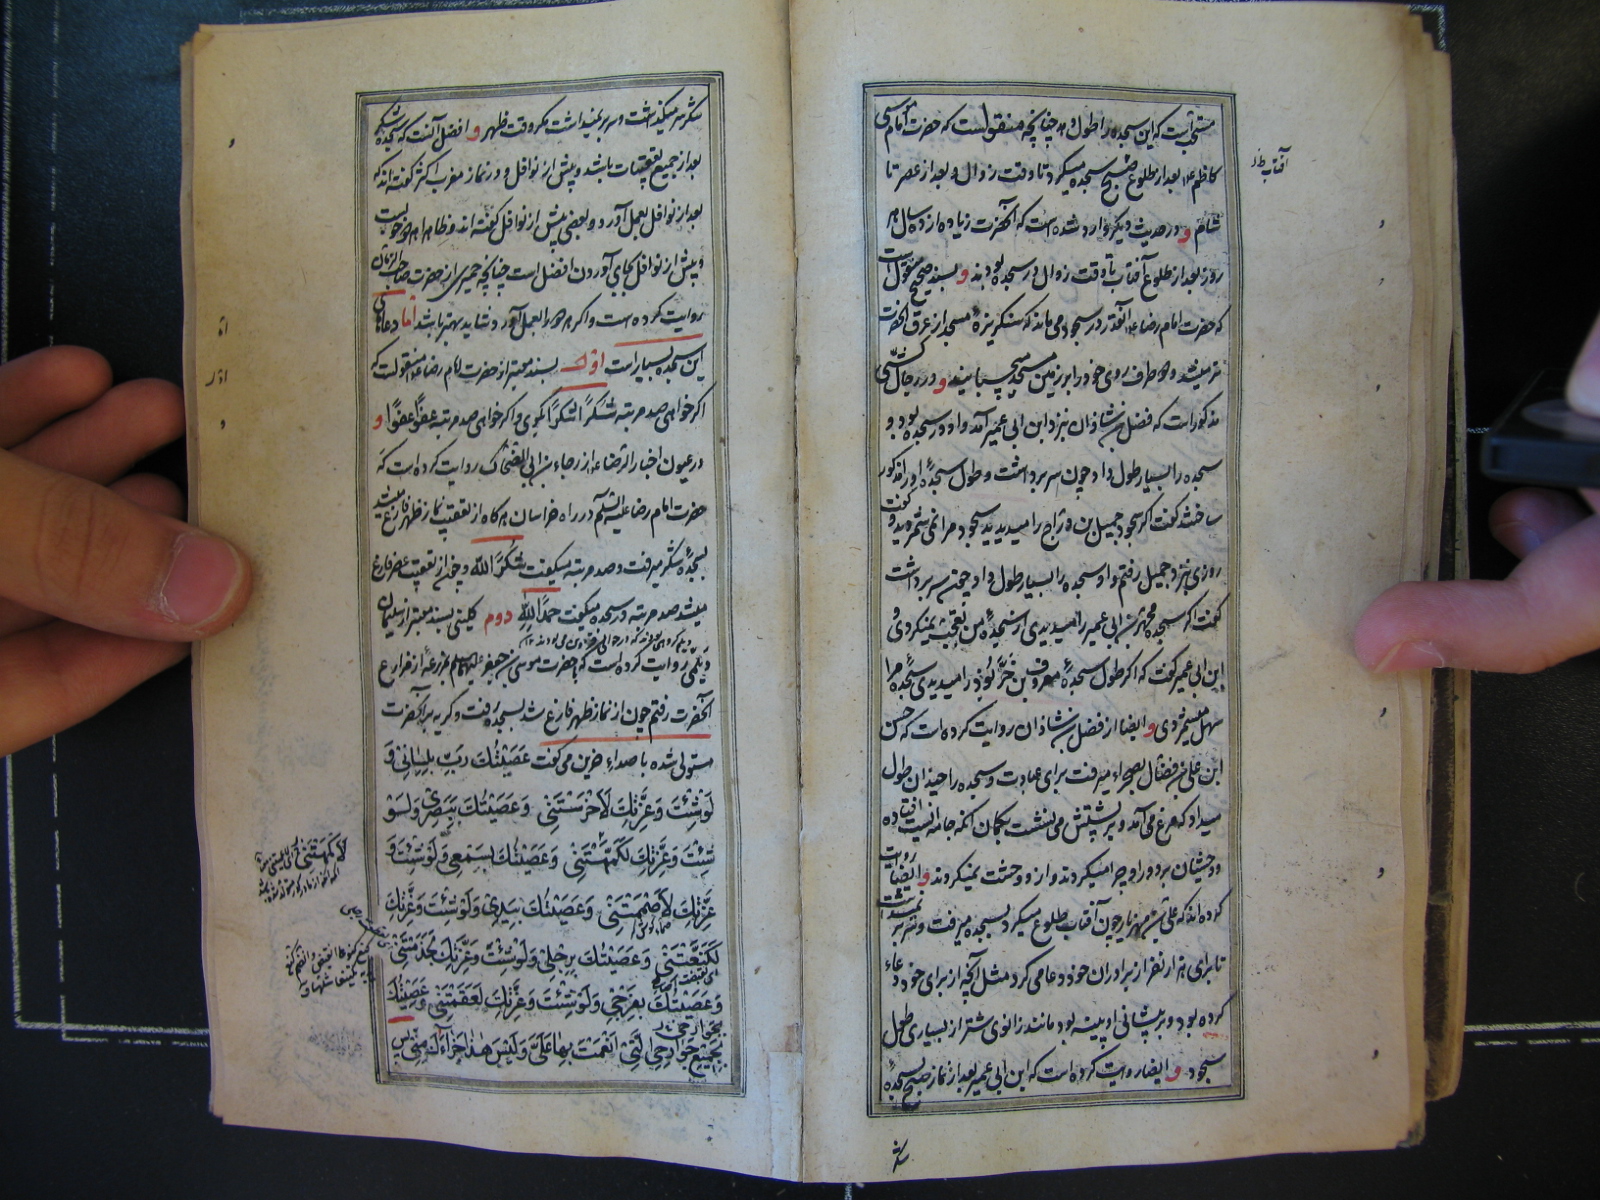 مستحب است که این سجده را طول دهد چنانچه منقولست که حضرت امام موسی
کاظم ع بعد از طلوع صبح سجده میکرد تا وقت زوال و بعد از عصر تا
شام و در حدیث دیگر وارد شده است که آنحضرت زیاده از ده سال هر
روز بعد از طلوع آفتاب تا وقت زوال در سجده بودند و بسند صحیح منقول است
که حضرت امام رضا ع آنقدر در سجود می ماند که سنگریزهٔ مسجد از عرق آنحضرت
تر میشد و دو طرف روی خود را بر زمین مسجد می چسبانیدند و در رجال کشّی
مذکور است که فضل بن شاذان بنزد ابن ابی عمیر آمد و او در سجده بود و
سجده را بسیار طول داد چون سر برداشت و طول سجدهٔ او را مذکور
ساختند گفت اگر سجود جمیل بن درّاج را میدیدید سجود مرا نمی شمردید و گفت
روزی بنزد جمیل رفتم و او سجده را بسیار طول داد چون سر برداشت
گفت اگر سجده محمد بن ابی عمیر را میدیدی از سجدهٔ من تعجّب نمیکردی و
ابن ابی عمیر گفت که اگر طول سجدهٔ معروف بن خرّبوذ را میدیدی سجدهٔ مرا
سهل میشمردی و ایضا از فضل بن شاذان روایت کرده است که حسن
ابن علی بن فضّال بصحراء میرفت برای عبادت و سجده را چندان طول
میداد که مرغ می آمد و بر پشتش می نشست بگمان آنکه جامه ایست افتاده
و وحشیان بر دور او چرا میکردند و از او وحشت نمیکردند و ایضا روایت
کرده اند که علی بن مهزیار چون آفتاب طلوع میکرد بسجده میرفت و سر بر نمیداشت
تا برای هزار نفر از برادران خود دعا می کرد مثل آنچه از برای خود دعاء
کرده بود و بر پیشانی او پینه بود مانند زانوی شتر از بسیاری طول
سجود و ایضا روایت کرده است که ابن ابی عمیر بعد از نماز صبح بسجدهٔ
شکر
شکر سر میگذاشت و سر بر نمیداشت مگر وقت ظهر و افضل آنست که سجده شکر
بعد از جمیع تعقیبات باشد و پیش از نوافل و در نماز مغرب اکثر گفته اند که
بعد از نوافل بعمل آورد و بعضی پیش از نوافل گفته اند و ظاهرا هر دو خوبست
و پیش از نوافل بجای آوردن افضل است چنانچه حمیری از حضرت صاحب الزمان
روایت کرده است و اگر هر دو را بعمل آورد شاید بهتر باشد اما دعاهای
این سجده بسیار است اول بسند معتبر از حضرت امام رضا ع منقولست که
اگر خواهی صد مرتبه شکرًا شکرًا بگوی و اگر خواهی صد مرتبه عفوًا عفوًا و
در عیون اخبار الرضا ع از رجاء بن ابی الضحّاک روایت کرده است که
حضرت امام رضا علیه السّلام در راه خراسان هر گاه از تعقیب نماز ظهر فارغ میشد
بسجدهٔ شکر میرفت و صد مرتبه میگفت شُكرًا لِلّه و چون از تعقیب عصر فارغ
میشد صد مرتبه در سجده میگفت حمدًا لِلّه دوم کلینی بسند معتبر از سلیمان
روایت کرده است که با حضرت موسی بن جعفر علیه السلم بمزرعهٔ از مزارع
آنحضرت رفتم چون از نماز ظهر فارغ شد بسجده رفت و گریه بر آنحضرت
مستولی شده با صداء حزین می گفت عَصَيْتُكَ رَبِّ بِلِسَانِي وَ
لَوْ شِئْتَ وَعِزَّتِكَ لَأَخْرَسْتَنِي وَعَصَيْتُكَ بِبَصَرِي وَلَوْ
شِئْتَ وَعِزَّتِكَ لَكَمَّهْتَنِي وَعَصَيْتُكَ بِسَمْعِي وَلَوْ شِئْتَ وَ
عِزَّتِكَ لَأَصْمَمْتَنِي وَعَصَيْتُكَ بِيَدِي وَلَوْ شِئْتَ وَعِزَّتِكَ
لَكَنَّعْتَنِي وَعَصَيْتُكَ بِرِجْلِي وَلَوْ شِئْتَ وَعِزَّتِكَ لَجَذَمْتَنِي
وَعَصَيْتُكَ بِفَرْجِي وَلَوْ شِئْتَ وَعِزَّتِكَ لَعَقَمْتَنِي وَعَصَيْتُكَ
بِجَمِيعِ جَوَارِحِي الَّتِي أَنْعَمْتَ بِهَا عَلَيَّ وَلَيْسَ هٰذَا جَزَاءَكَ مِنِّي پس
لأكمهتني